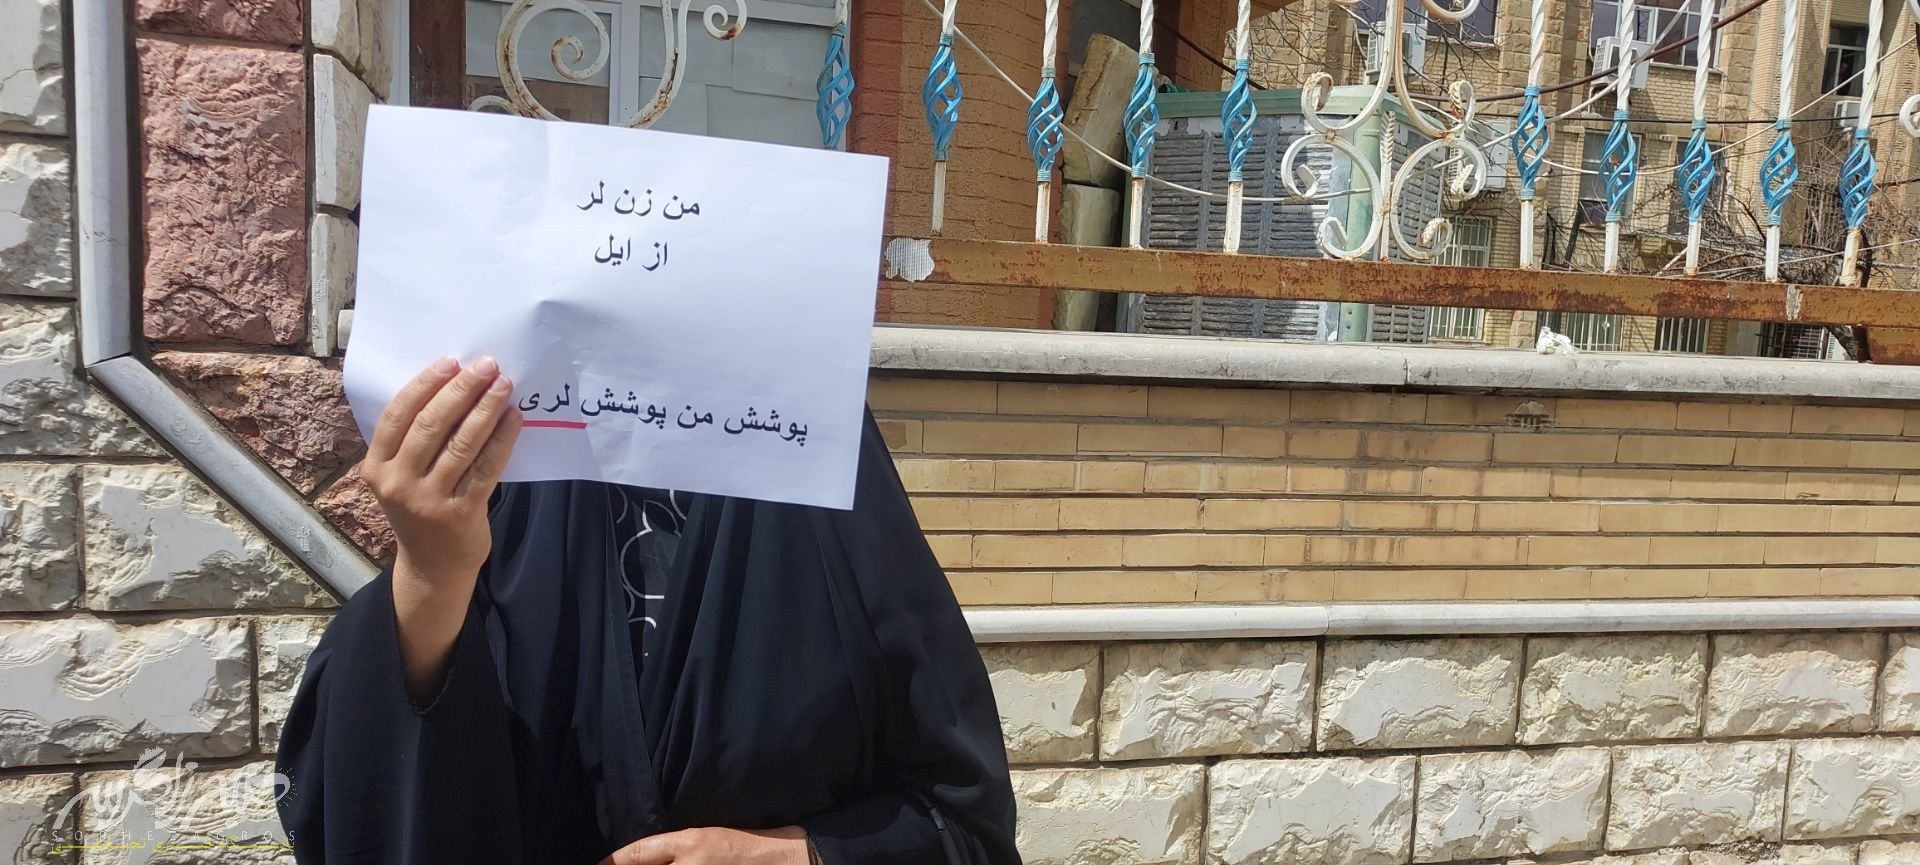 من زن لر
از ایل
پوشش من پوشش لری
صبح زاگرس
SOBHEZAGROS